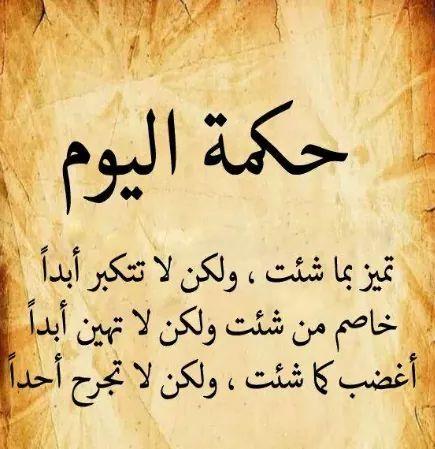 حكمة اليوم
تميز بما شئت ، ولكن لا تتكبر أبداً
خاصم من شئت ولكن لا تهين أبداً
أغضب كما شئت ، ولكن لا تجرح أحداً